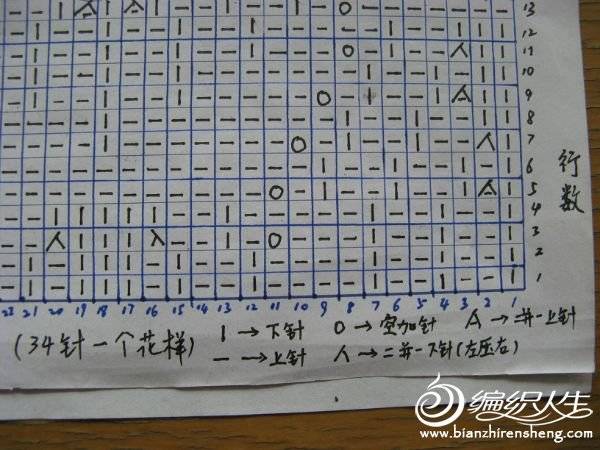 13
12
11
10
9
8
7
6
5
4
3
2
1
行数
23 22 21 20 19 18 17 16 15 14 13 12 11 10 9 8 7 6 5 4 3 2 1
(34针一个花样) | → 下针 O → 空加针 → 二并一上针
— → 上针 人 → 二并一下针(左压右)
编织人生
www.bianzhirensheng.com